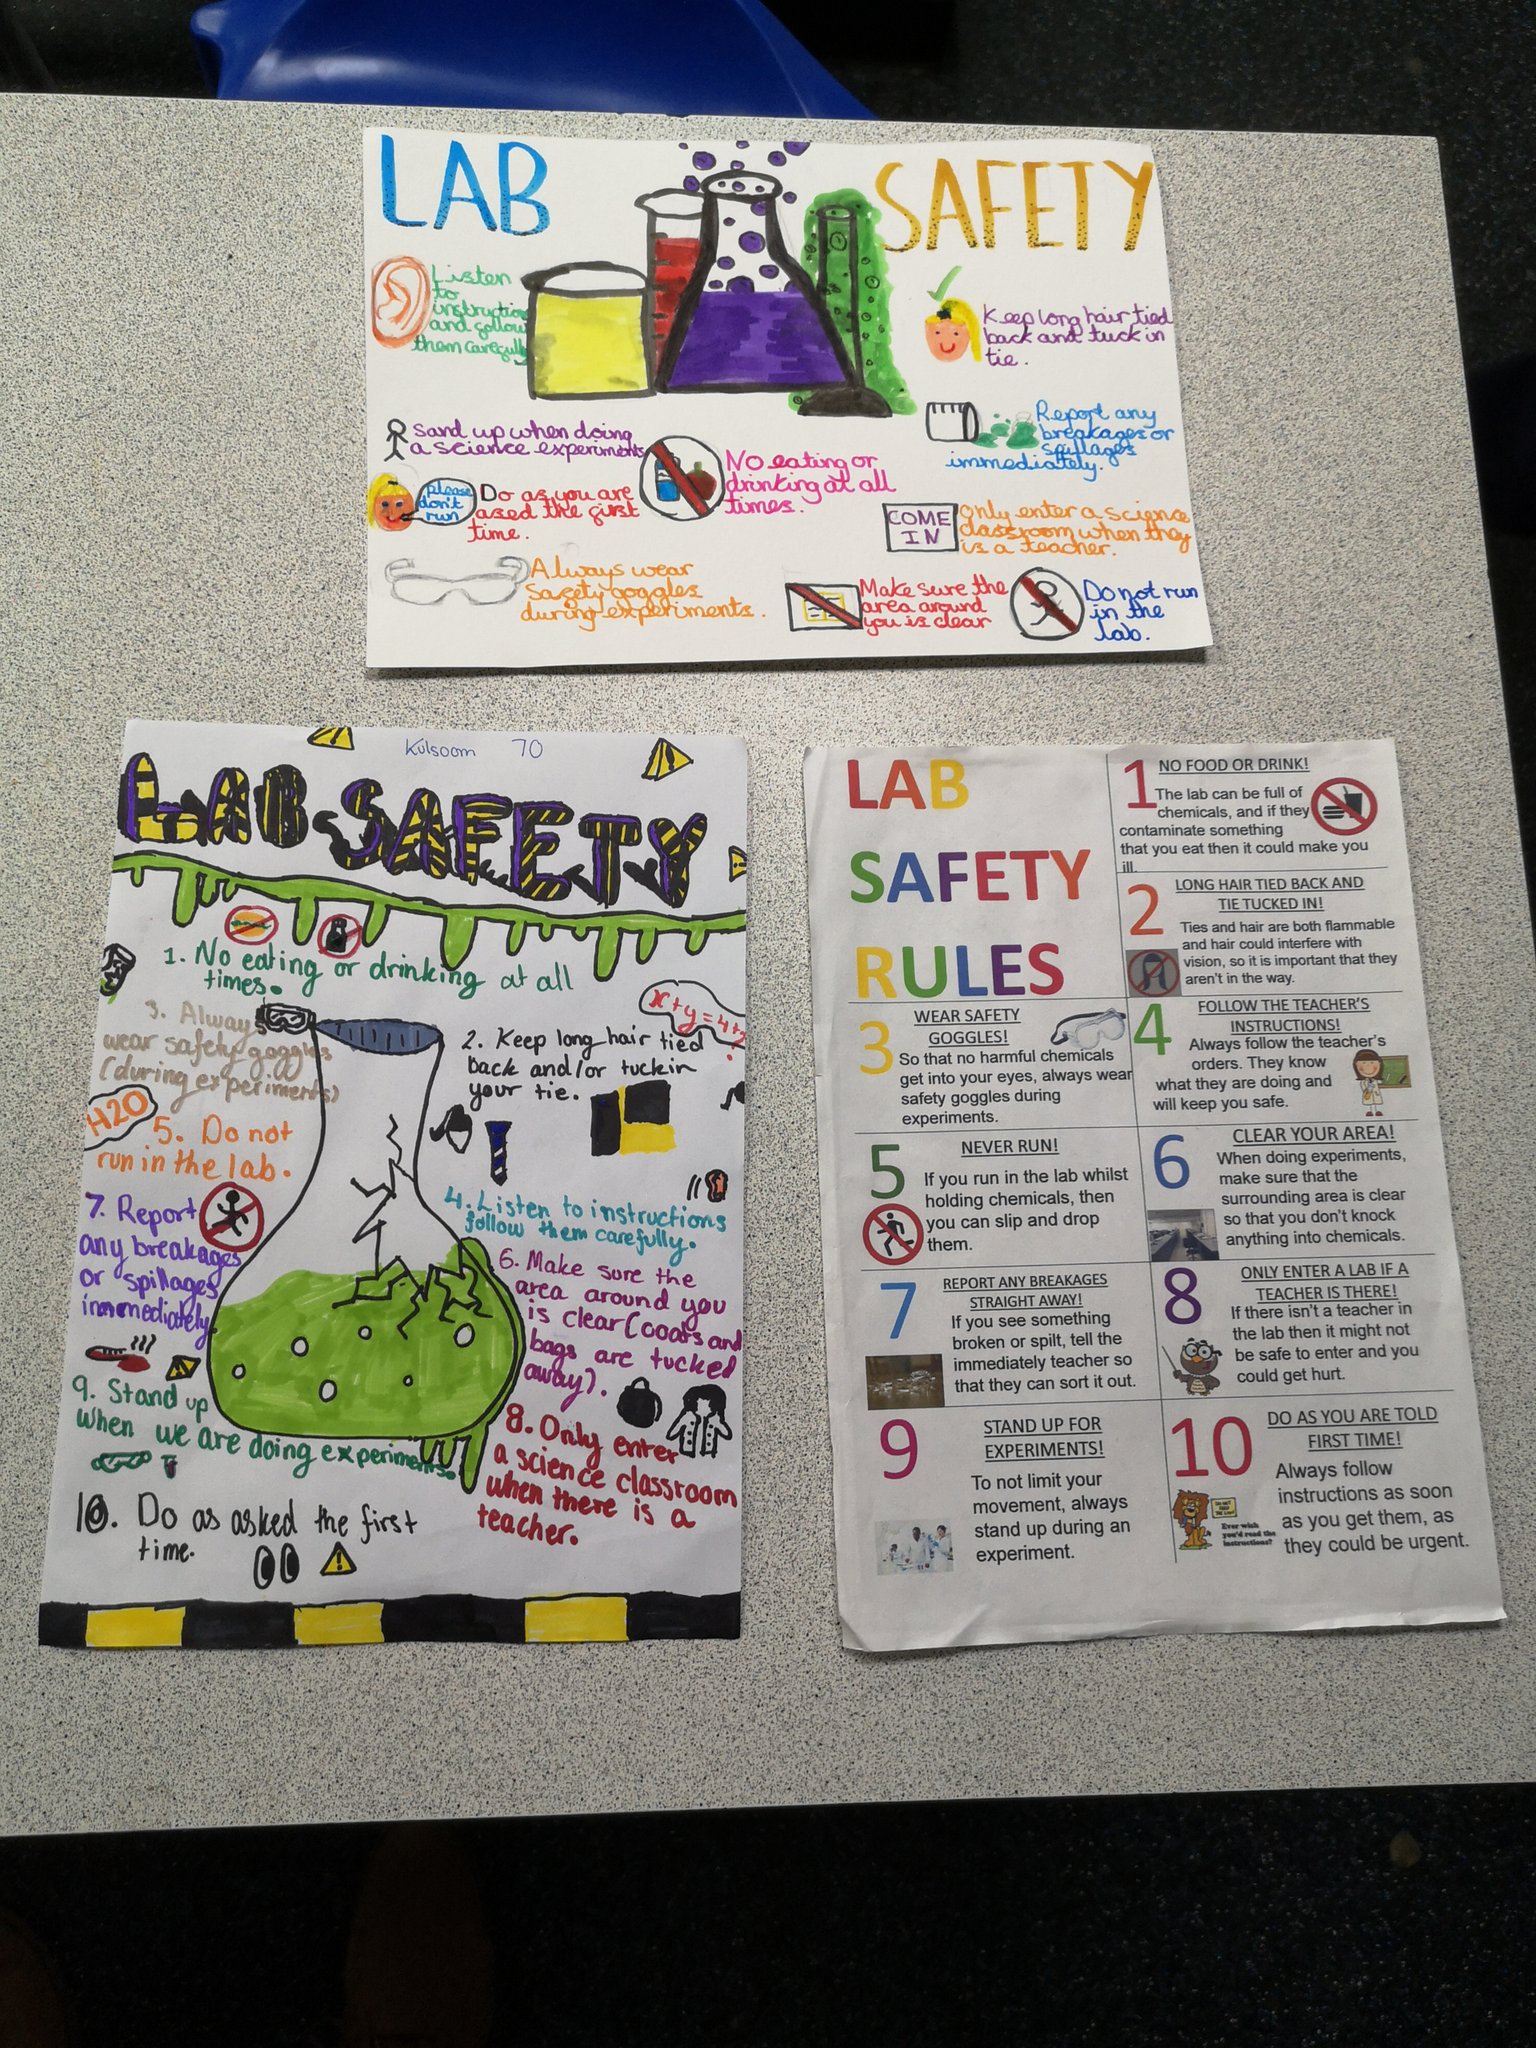 LAB SAFETY
Listen
to
instructions
and follow
them carefully
Keep long hair tied
back and tuck in
tie.
Sand up when doing
a science experiments
Report any
breakages or
spillages
immediately.
please
don't
run
Do as you are
ased the first
time.
No eating or
drinking at all
times.
COME
IN
only enter a science
classroom when they
is a teacher.
Always wear
safety goggles
during experiments.
Make sure the
area around
you is clear
Do not run
in the
lab.
Kulsoom 70
LAB SAFETY
1. No eating or drinking at all
times.
x+y=4+2
?
2. Keep long hair tied
back and/or tuck in
your tie.
3. Always
wear safety goggles
(during experiments)
H2O
4. Listen to instructions
follow them carefully.
5. Do not
run in the lab.
6. Make sure the
area around you
is clear (coats and
bags are tucked
away).
7. Report
any breakages
or spillages
immediately.
8. Only enter
a science classroom
when there is a
teacher.
9. Stand up
when we are doing experiments.
10. Do as asked the first
time.
LAB
SAFETY
RULES
1 NO FOOD OR DRINK!
The lab can be full of
chemicals, and if they
contaminate something
that you eat then it could make you
ill.
2 LONG HAIR TIED BACK AND
TIE TUCKED IN!
Ties and hair are both flammable
and hair could interfere with
vision, so it is important that they
aren't in the way.
3 WEAR SAFETY
GOGGLES!
So that no harmful chemicals
get into your eyes, always wear
safety goggles during
experiments.
4 FOLLOW THE TEACHER'S
INSTRUCTIONS!
Always follow the teacher's
orders. They know
what they are doing and
will keep you safe.
5 NEVER RUN!
If you run in the lab whilst
holding chemicals, then
you can slip and drop
them.
6 CLEAR YOUR AREA!
When doing experiments,
make sure that the
surrounding area is clear
so that you don't knock
anything into chemicals.
7 REPORT ANY BREAKAGES
STRAIGHT AWAY!
If you see something
broken or spilt, tell the
immediately teacher so
that they can sort it out.
8 ONLY ENTER A LAB IF A
TEACHER IS THERE!
If there isn't a teacher in
the lab then it might not
be safe to enter and you
could get hurt.
9 STAND UP FOR
EXPERIMENTS!
To not limit your
movement, always
stand up during an
experiment.
10 DO AS YOU ARE TOLD
FIRST TIME!
Always follow
instructions as soon
as you get them, as
they could be urgent.
Ever wish
you'd read the
instructions?